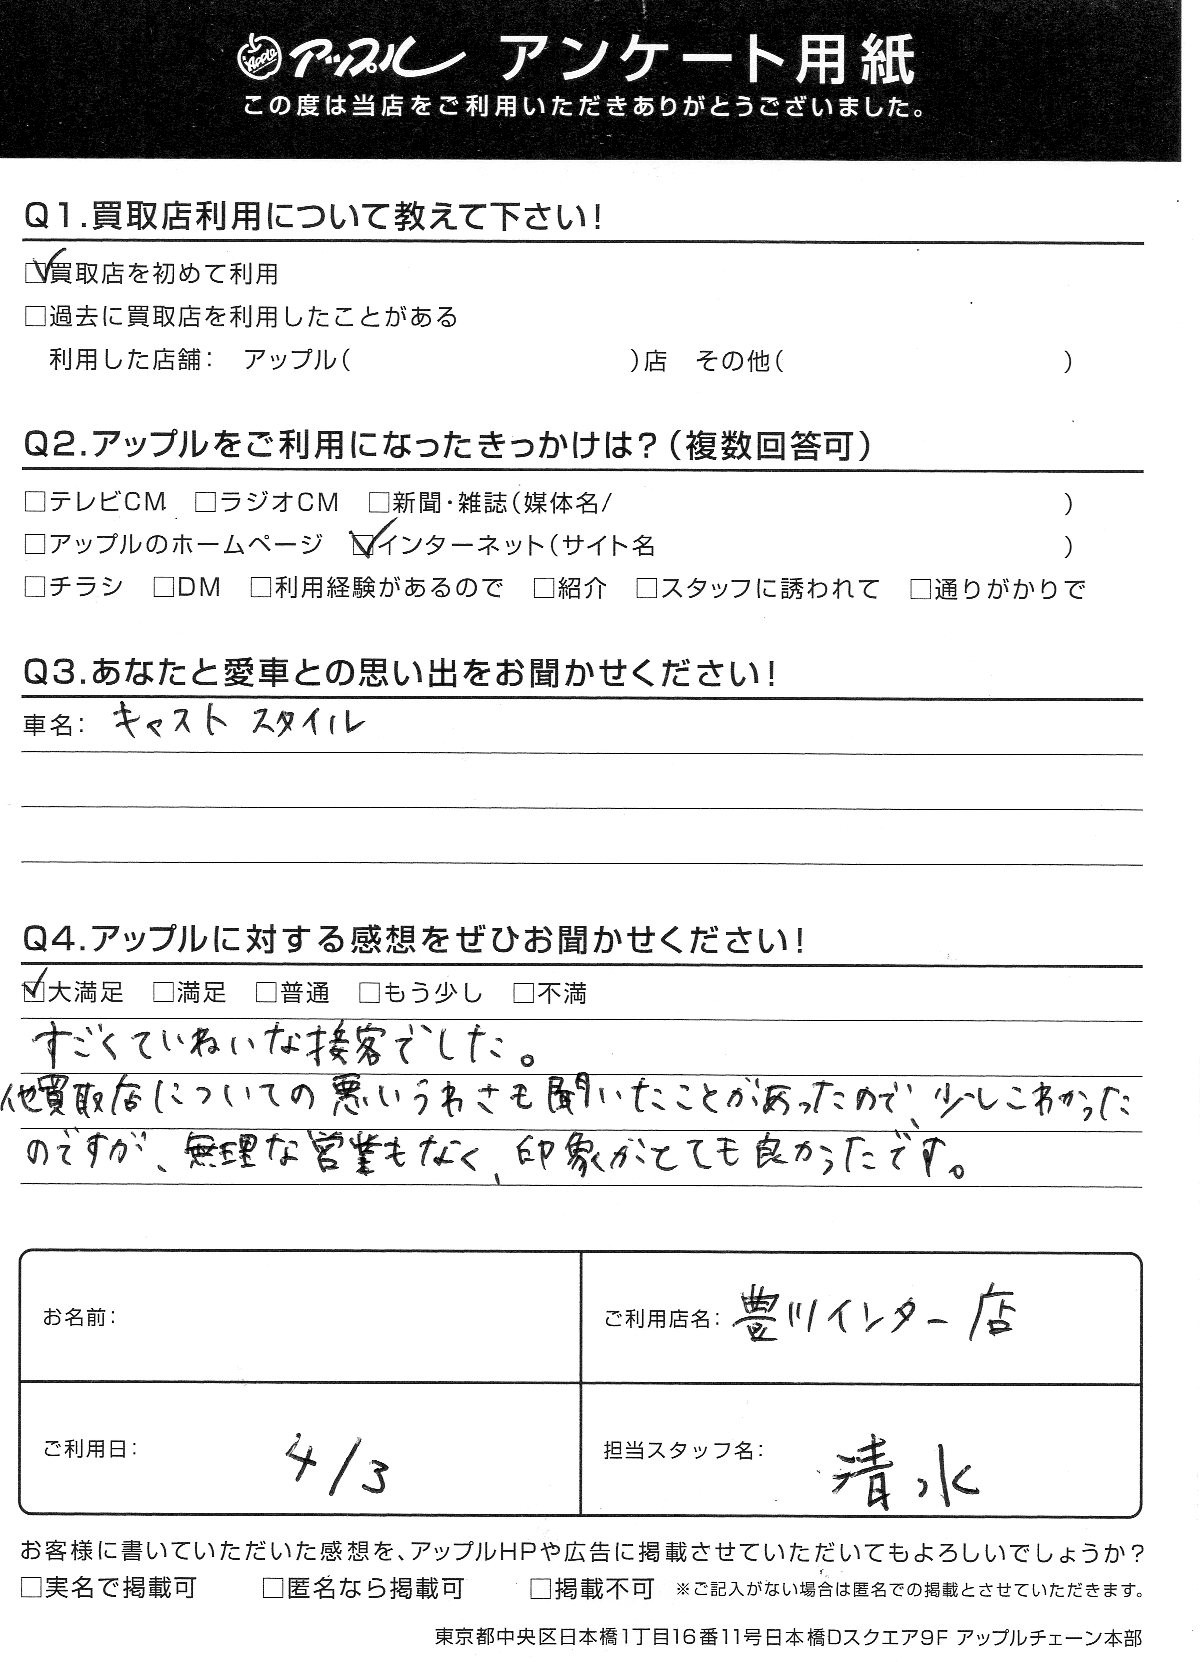 Apple アップル アンケート用紙
この度は当店をご利用いただきありがとうございました。
Q1.買取店利用について教えて下さい!
☑買取店を初めて利用
□過去に買取店を利用したことがある
利用した店舗: アップル( )店 その他( )
Q2.アップルをご利用になったきっかけは?(複数回答可)
□テレビCM □ラジオCM □新聞・雑誌(媒体名/ )
□アップルのホームページ ☑インターネット(サイト名 )
□チラシ □DM □利用経験があるので □紹介 □スタッフに誘われて □通りがかりで
Q3.あなたと愛車との思い出をお聞かせください!
車名: キャスト スタイル
Q4.アップルに対する感想をぜひお聞かせください!
☑大満足 □満足 □普通 □もう少し □不満
すごくていねいな接客でした。
他買取店についての悪いうわさも聞いたことがあったので、少しこわかった
のですが、無理な営業もなく、印象がとても良かったです。
お名前:
ご利用店名: 豊川インター店
ご利用日: 4/3
担当スタッフ名: 清水
お客様に書いていただいた感想を、アップルHPや広告に掲載させていただいてもよろしいでしょうか?
□実名で掲載可 □匿名なら掲載可 □掲載不可 ※ご記入がない場合は匿名での掲載とさせていただきます。
東京都中央区日本橋1丁目16番11号日本橋Dスクエア9F アップルチェーン本部